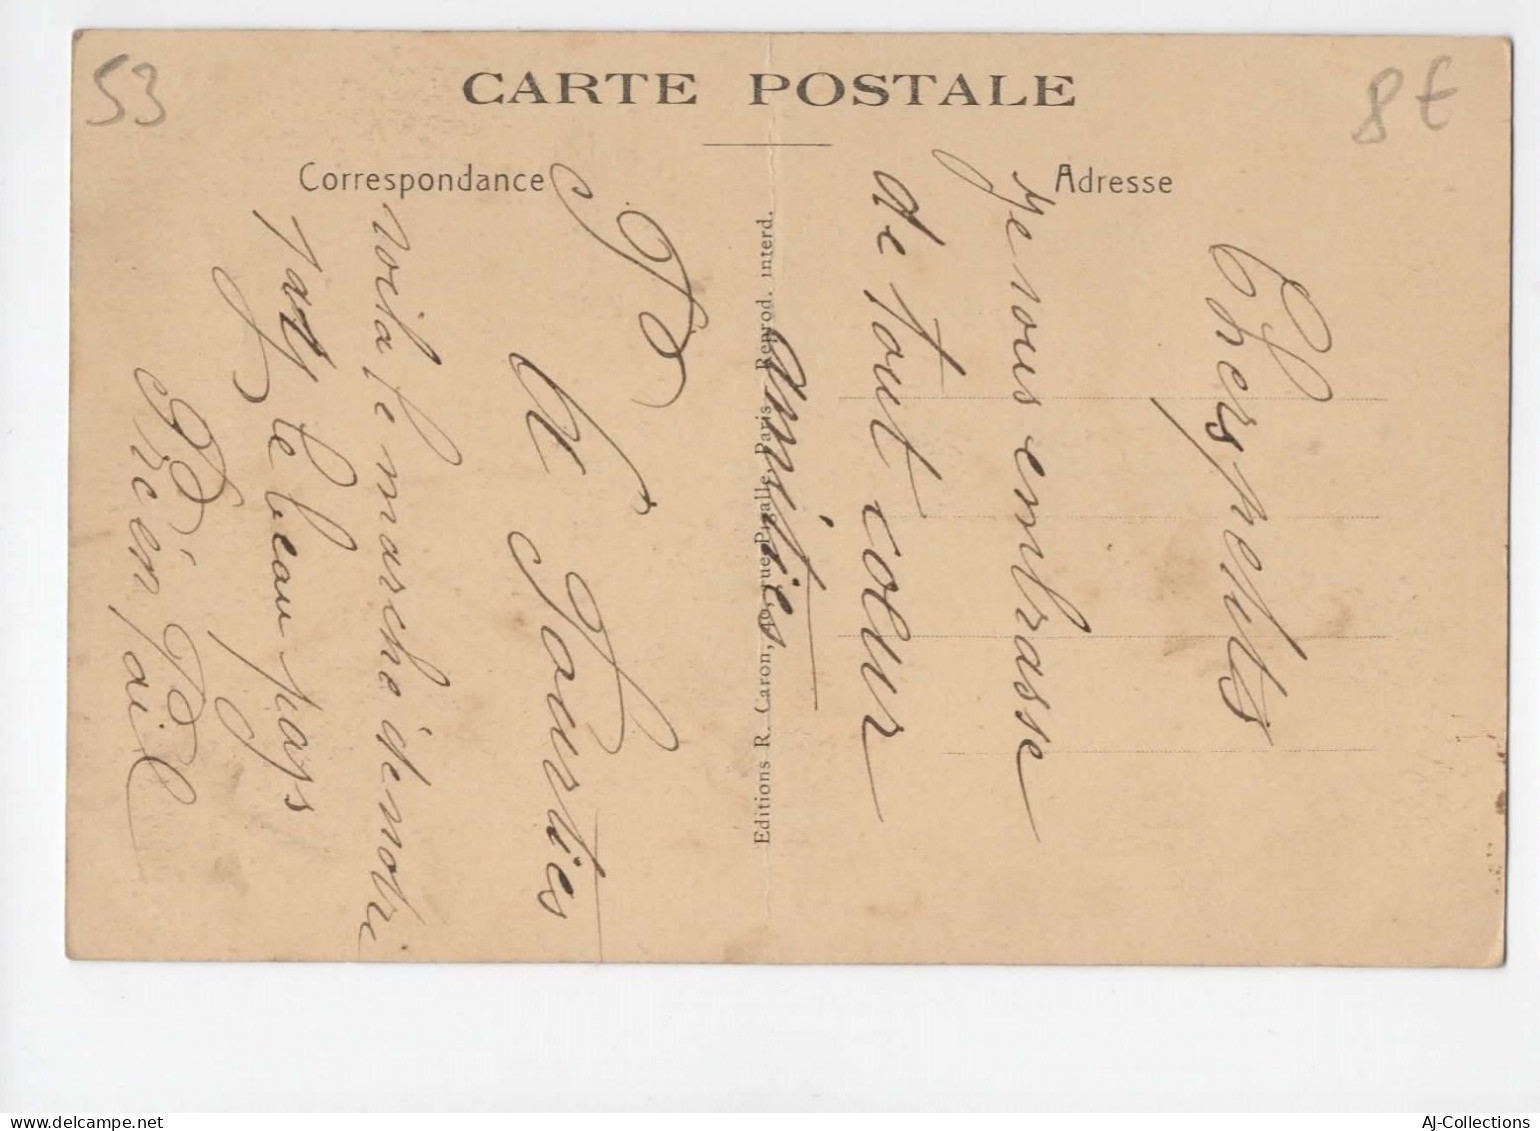 53
8€
CARTE POSTALE
Correspondance
Adresse
Chers petits
je vous embrasse
de tout coeur
amitiés
A
Tourties
voila le marche de motre
le beau pays
Pré en Pail
Editions R. Caron, rue Pigalle, Paris - Reprod. interd.
delcampe.net
AJ-Collections